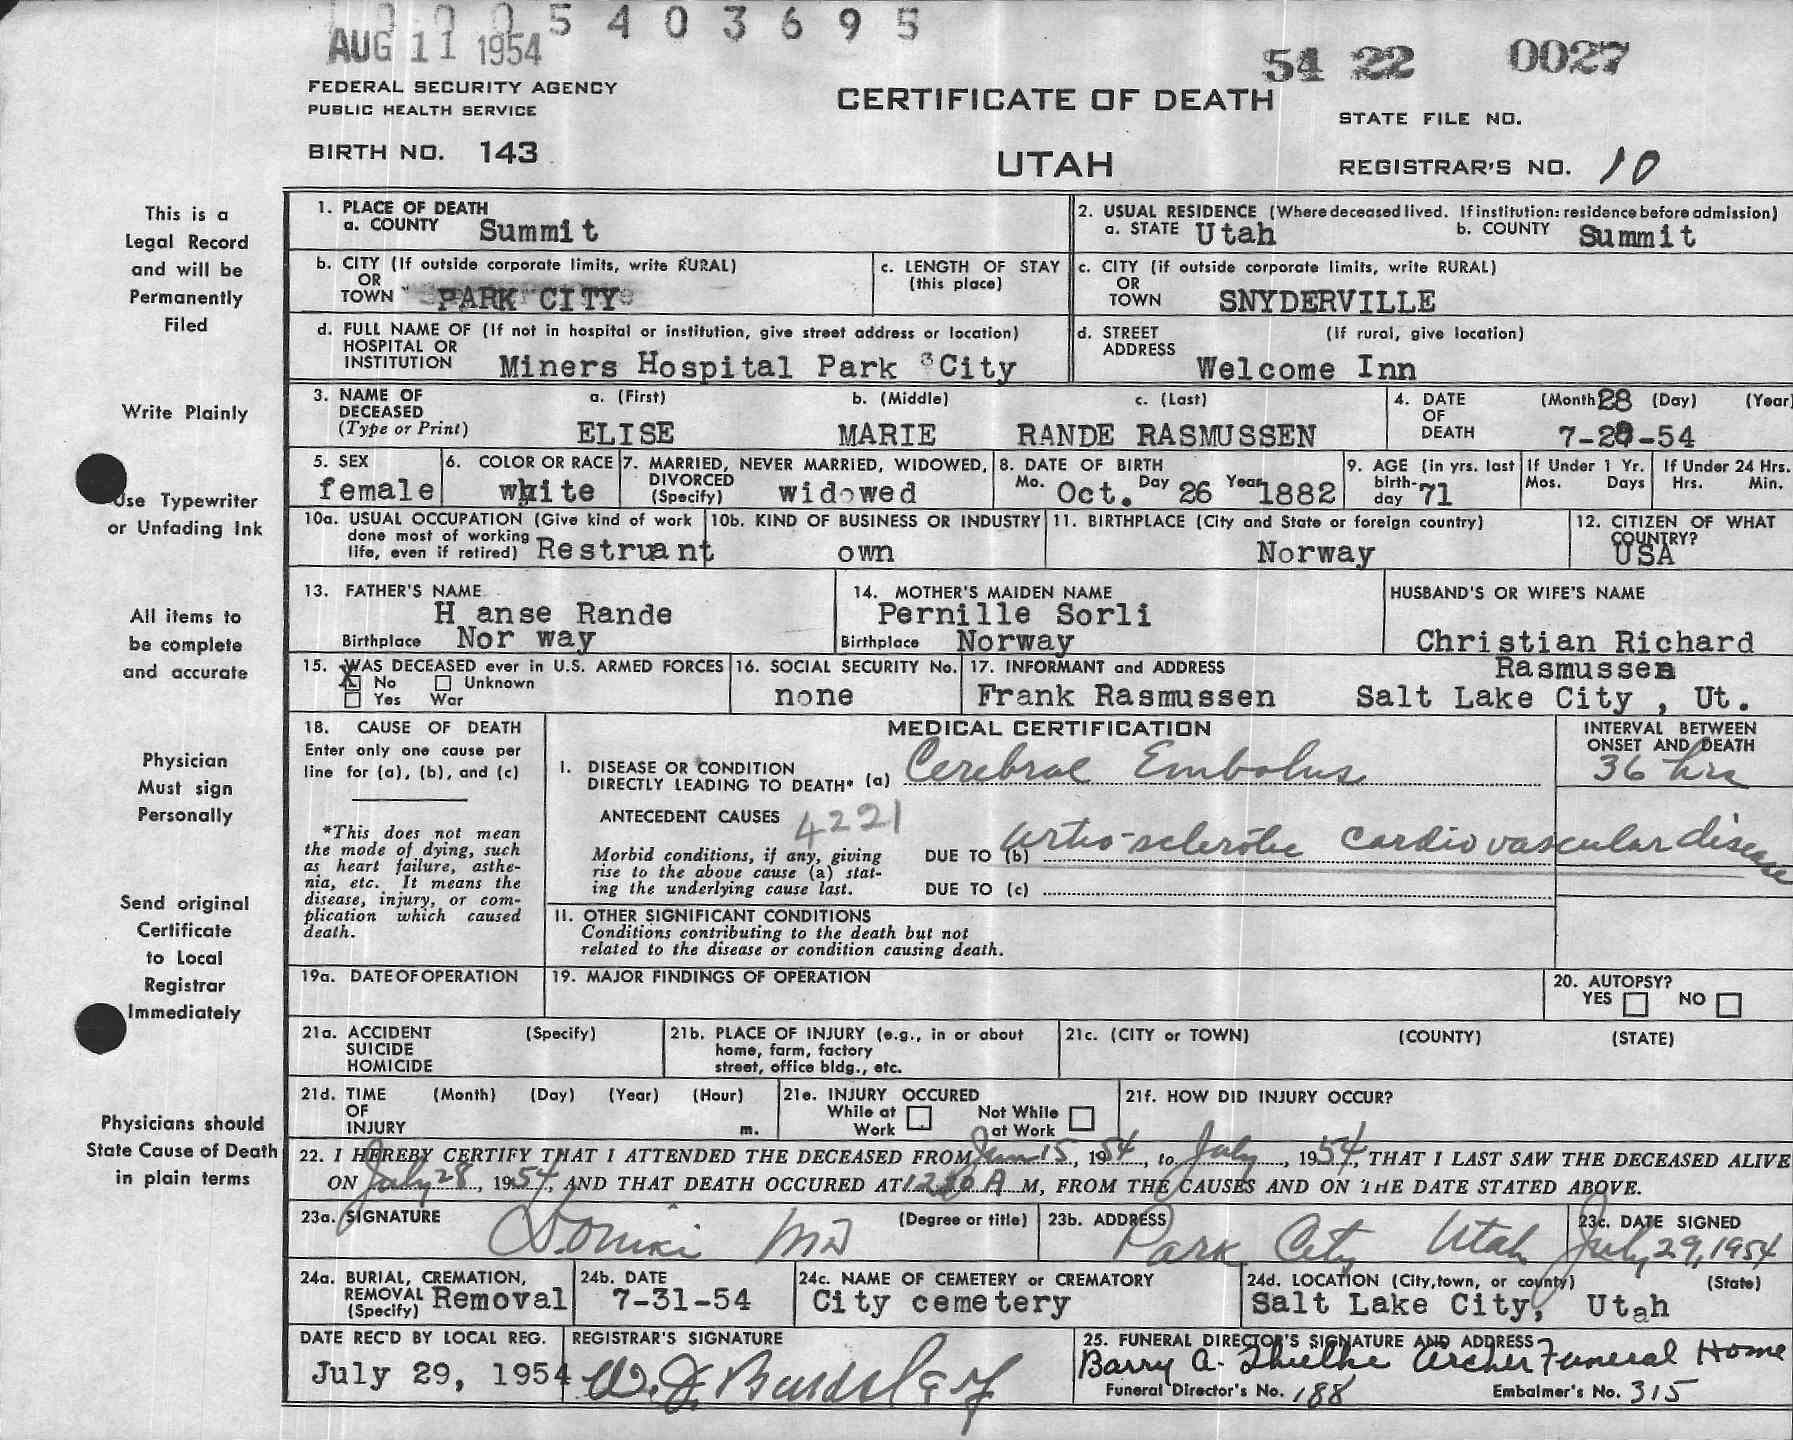 0 0 0 5 4 0 3 6 9 5
AUG 11 1954
54 22 0027
FEDERAL SECURITY AGENCY
PUBLIC HEALTH SERVICE
CERTIFICATE OF DEATH
STATE FILE NO.
BIRTH NO. 143
UTAH
REGISTRAR'S NO. 10
This is a
Legal Record
and will be
Permanently
Filed
Write Plainly
Use Typewriter
or Unfading Ink
All items to
be complete
and accurate
Physician
Must sign
Personally
Send original
Certificate
to Local
Registrar
Immediately
Physicians should
State Cause of Death
in plain terms
1. PLACE OF DEATH
a. COUNTY Summit
2. USUAL RESIDENCE (Where deceased lived. If institution: residence before admission)
a. STATE Utah b. COUNTY Summit
b. CITY (If outside corporate limits, write RURAL)
OR
TOWN PARK CITY
c. LENGTH OF STAY
(this place)
c. CITY (if outside corporate limits, write RURAL)
OR
TOWN SNYDERVILLE
d. FULL NAME OF (If not in hospital or institution, give street address or location)
HOSPITAL OR
INSTITUTION Miners Hospital Park City
d. STREET (If rural, give location)
ADDRESS Welcome Inn
3. NAME OF a. (First) b. (Middle) c. (Last)
DECEASED
(Type or Print) ELISE MARIE RANDE RASMUSSEN
4. DATE (Month) 28 (Day) (Year)
OF
DEATH 7-28-54
5. SEX
female
6. COLOR OR RACE
white
7. MARRIED, NEVER MARRIED, WIDOWED,
DIVORCED
(Specify) widowed
8. DATE OF BIRTH
Mo. Oct. Day 26 Year 1882
9. AGE (in yrs. last
birth-
day 71
If Under 1 Yr.
Mos. Days
If Under 24 Hrs.
Hrs. Min.
10a. USUAL OCCUPATION (Give kind of work
done most of working
life, even if retired) Restruant
10b. KIND OF BUSINESS OR INDUSTRY
own
11. BIRTHPLACE (City and State or foreign country)
Norway
12. CITIZEN OF WHAT
COUNTRY?
USA
13. FATHER'S NAME
H anse Rande
Birthplace Nor way
14. MOTHER'S MAIDEN NAME
Pernille Sorli
Birthplace Norway
HUSBAND'S OR WIFE'S NAME
Christian Richard
Rasmussen
15. WAS DECEASED ever in U.S. ARMED FORCES
X No Unknown
Yes War
16. SOCIAL SECURITY No.
none
17. INFORMANT and ADDRESS
Frank Rasmussen Salt Lake City , Ut.
18. CAUSE OF DEATH
Enter only one cause per
line for (a), (b), and (c)
*This does not mean
the mode of dying, such
as heart failure, asthe-
nia, etc. It means the
disease, injury, or com-
plication which caused
death.
MEDICAL CERTIFICATION
INTERVAL BETWEEN
ONSET AND DEATH
36 hrs
I. DISEASE OR CONDITION
DIRECTLY LEADING TO DEATH* (a) Cerebral Embolus
ANTECEDENT CAUSES 4221
Morbid conditions, if any, giving
rise to the above cause (a) stat-
ing the underlying cause last.
DUE TO (b) Artio-sclerotic Cardiovascular disease
DUE TO (c)
II. OTHER SIGNIFICANT CONDITIONS
Conditions contributing to the death but not
related to the disease or condition causing death.
19a. DATE OF OPERATION
19. MAJOR FINDINGS OF OPERATION
20. AUTOPSY?
YES NO
21a. ACCIDENT (Specify)
SUICIDE
HOMICIDE
21b. PLACE OF INJURY (e.g., in or about
home, farm, factory
street, office bldg., etc.
21c. (CITY or TOWN) (COUNTY) (STATE)
21d. TIME (Month) (Day) (Year) (Hour)
OF
INJURY m.
21e. INJURY OCCURED
While at Work Not While at Work
21f. HOW DID INJURY OCCUR?
22. I HEREBY CERTIFY THAT I ATTENDED THE DECEASED FROM 15, 1954, to July, 1954, THAT I LAST SAW THE DECEASED ALIVE
ON July 28, 1954, AND THAT DEATH OCCURED AT A M, FROM THE CAUSES AND ON THE DATE STATED ABOVE.
23a. SIGNATURE (Degree or title)
MD
23b. ADDRESS
Park City Utah
23c. DATE SIGNED
July 29, 1954
24a. BURIAL, CREMATION,
REMOVAL
(Specify) Removal
24b. DATE
7-31-54
24c. NAME OF CEMETERY or CREMATORY
City cemetery
24d. LOCATION (City, town, or county) (State)
Salt Lake City, Utah
DATE REC'D BY LOCAL REG.
July 29, 1954
REGISTRAR'S SIGNATURE
W. J. Bardsley
25. FUNERAL DIRECTOR'S SIGNATURE AND ADDRESS
Barry A. Archer Funeral Home
Funeral Director's No. 188 Embalmer's No. 315